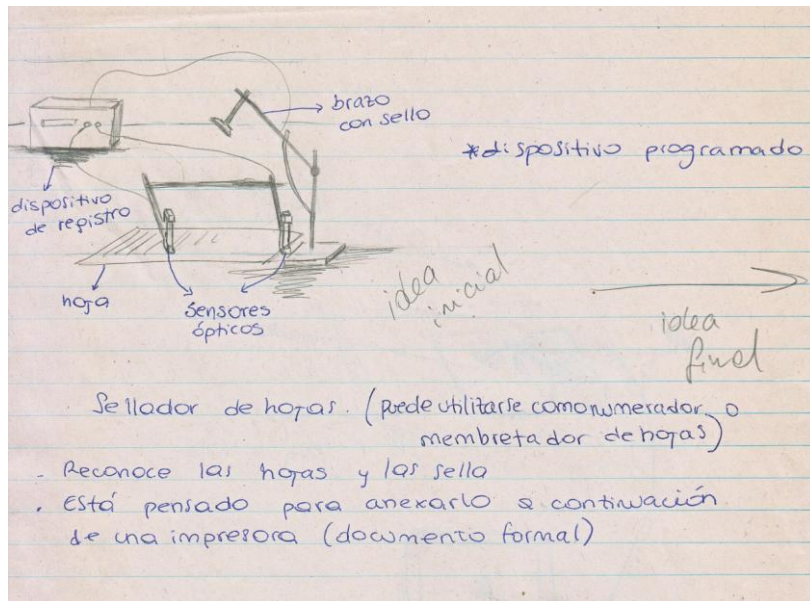 brazo
con sello
*dispositivo programado
dispositivo
de registro
hoja
sensores
ópticos
idea
inicial
idea
final
Sellador de hojas. (puede utilizarse como numerador o
membretador de hojas)
- Reconoce las hojas y las sella
. Está pensado para anexarlo a continuación
de una impresora (documento formal)